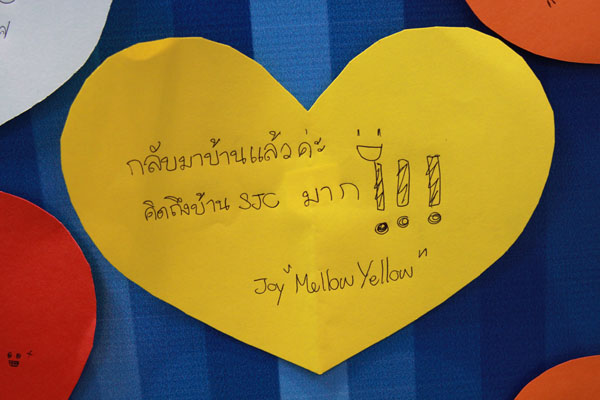 กลับมาบ้านแล้วค่ะ
คิดถึงบ้าน SJC มาก !!!
Joy "Mellow Yellow"